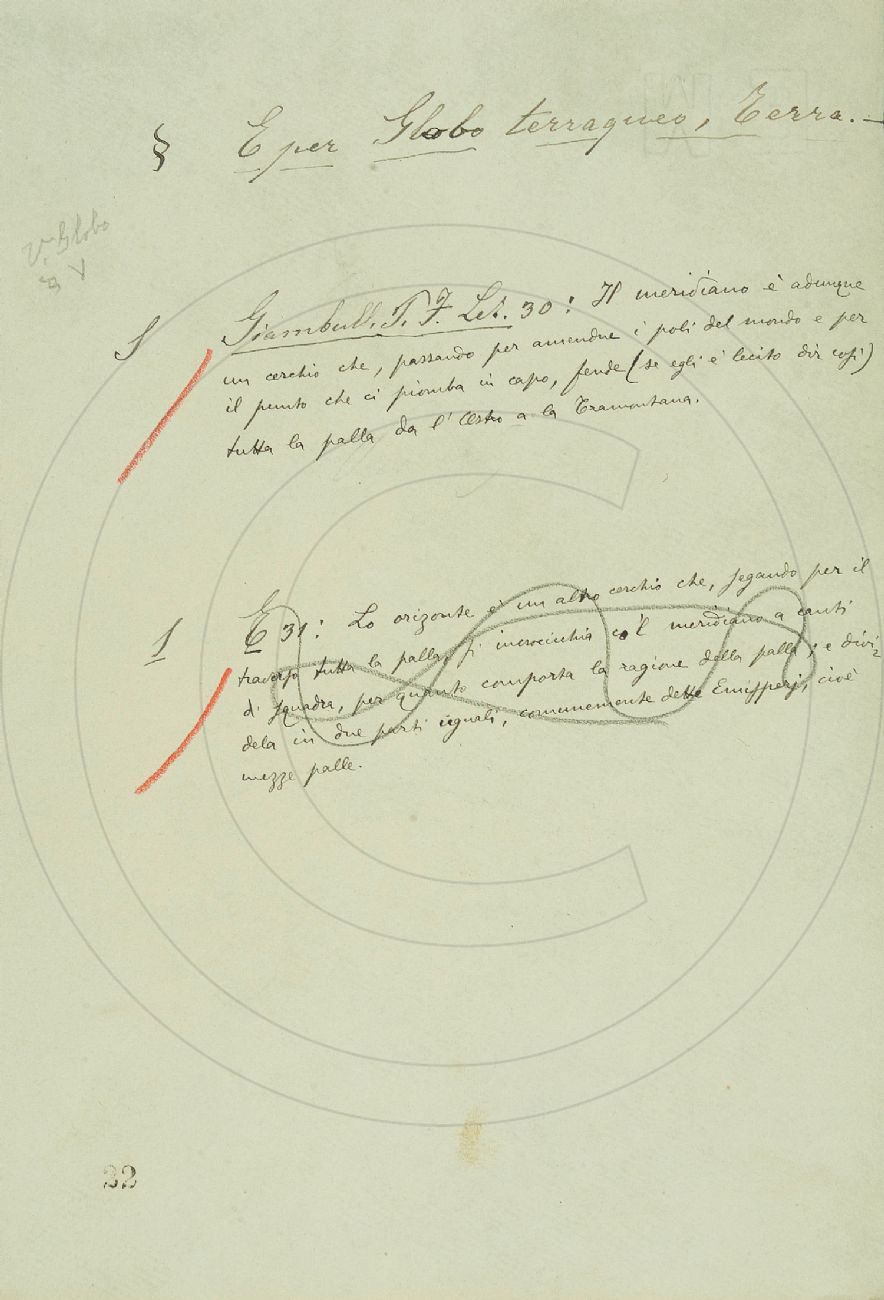 § E per Globo terraqueo, Terra. —
V. Globo
§ V
§ Giambull. P. F. Let. 30: Il meridiano è adunque
un cerchio che, passando per amendue i poli del mondo e per
il punto che ci piomba in capo, fende (se egli è lecito dir cosí)
tutta la palla da l'Ostro a la Tramontana.
1 E 31: Lo orizonte è un altro cerchio che, segando per il
traverso tutta la palla, si incrocicchia co'l meridiano a canti
di squadra, per quanto comporta la ragione della palla; e divi=
dela in due parti uguali, comunemente dette Emisperj, cioè
mezze palle.
22